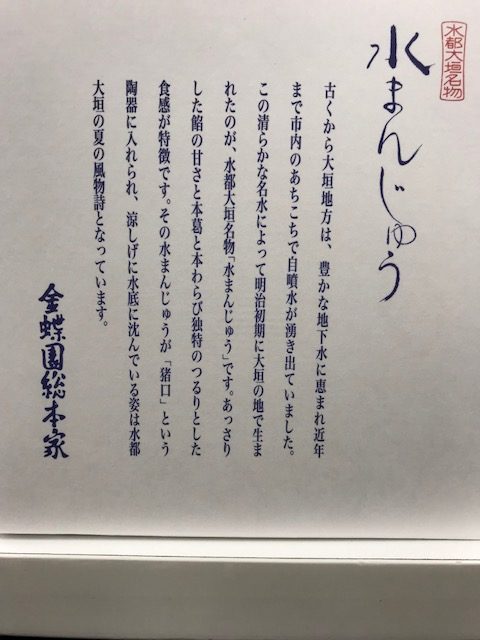 水都大垣名物
水まんじゅう
古くから大垣地方は、豊かな地下水に恵まれ近年
まで市内のあちこちで自噴水が湧き出ていました。
この清らかな名水によって明治初期に大垣の地で生ま
れたのが、水都大垣名物「水まんじゅう」です。あっさり
した餡の甘さと本葛と本わらび独特のつるりとした
食感が特徴です。その水まんじゅうが「猪口」という
陶器に入れられ、涼しげに水底に沈んでいる姿は水都
大垣の夏の風物詩となっています。
金蝶園総本家